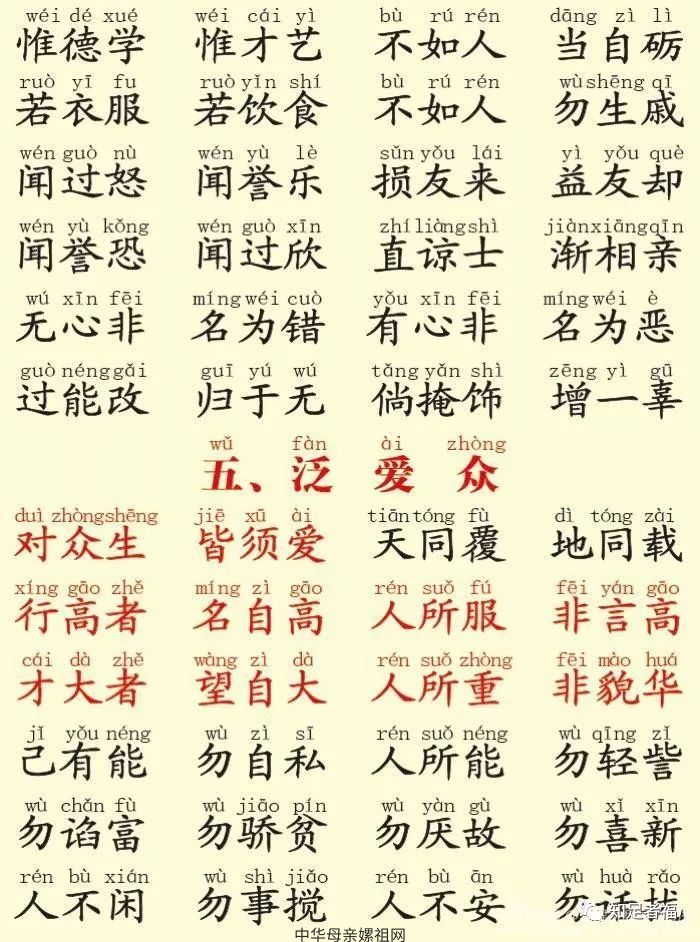 wéi dé xué wéi cái yì bù rú rén dāng zì lì
惟德学 惟才艺 不如人 当自砺
ruò yī fu ruò yǐn shí bù rú rén wù shēng qī
若衣服 若饮食 不如人 勿生戚
wén guò nù wén yù lè sǔn yǒu lái yì yǒu què
闻过怒 闻誉乐 损友来 益友却
wén yù kǒng wén guò xīn zhí liàng shì jiàn xiāng qīn
闻誉恐 闻过欣 直谅士 渐相亲
wú xīn fēi míng wéi cuò yǒu xīn fēi míng wéi è
无心非 名为错 有心非 名为恶
guò néng gǎi guī yú wú tǎng yǎn shì zēng yì gū
过能改 归于无 倘掩饰 增一辜
wǔ fàn ài zhòng
五、泛爱众
duì zhòng shēng jiē xū ài tiān tóng fù dì tóng zài
对众生 皆须爱 天同覆 地同载
xíng gāo zhě míng zì gāo rén suǒ fú fēi yán gāo
行高者 名自高 人所服 非言高
cái dà zhě wàng zì dà rén suǒ zhòng fēi mào huá
才大者 望自大 人所重 非貌华
jǐ yǒu néng wù zì sī rén suǒ néng wù qīng zǐ
己有能 勿自私 人所能 勿轻訾
wù chǎn fù wù jiāo pín wù yàn gù wù xǐ xīn
勿谄富 勿骄贫 勿厌故 勿喜新
rén bù xián wù shì jiǎo rén bù ān wù huà rǎo
人不闲 勿事搅 人不安 勿话扰
知足者福
中华母亲嫘祖网